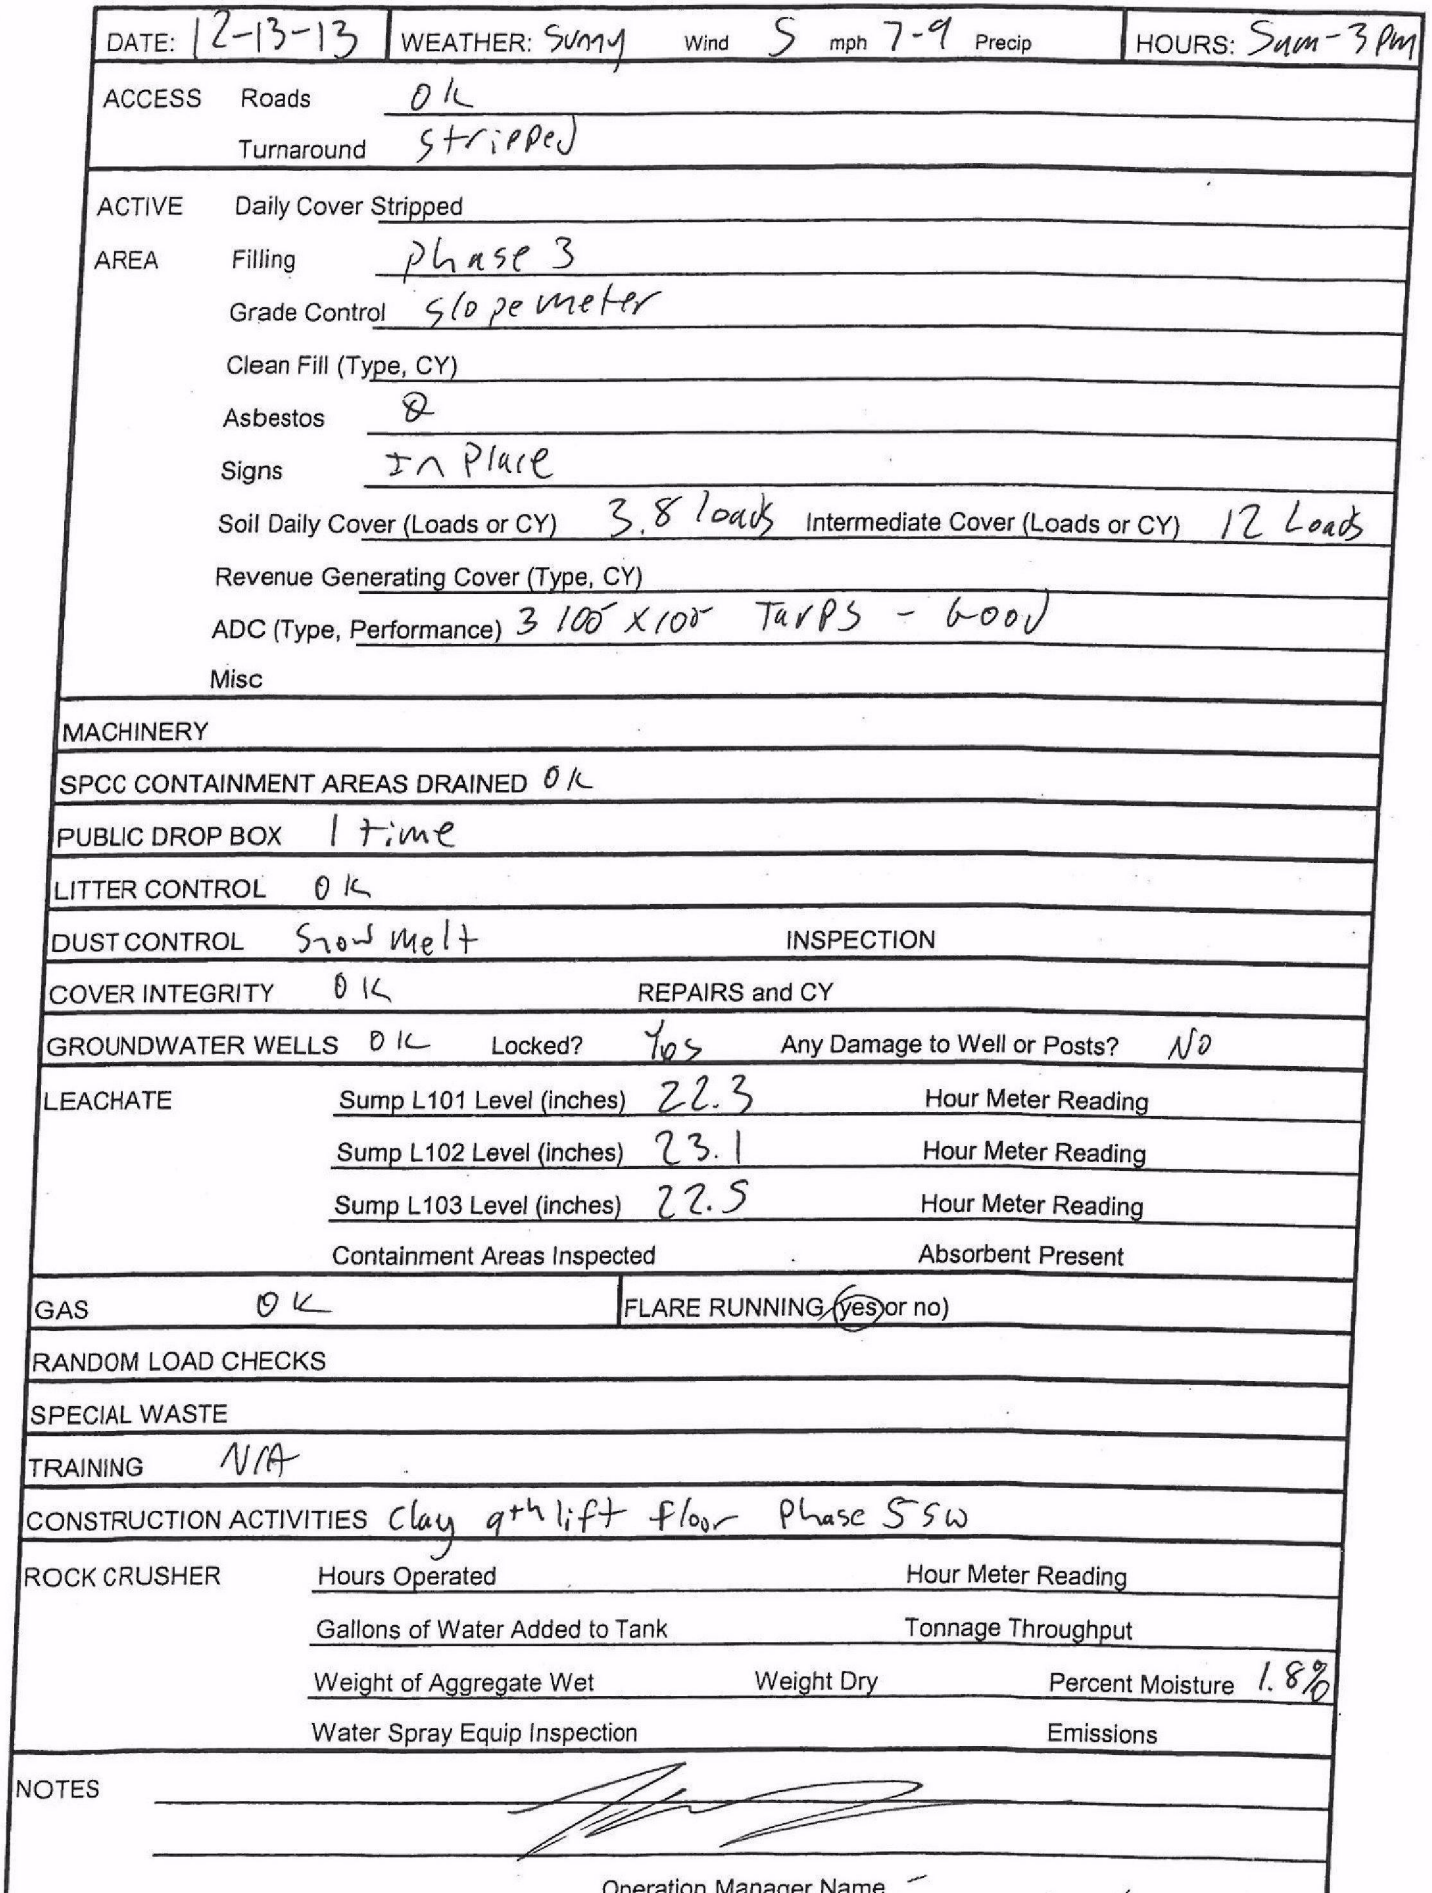 DATE: 12-13-13 WEATHER: Sunny Wind S mph 7-9 Precip HOURS: 5am-3pm
ACCESS Roads OK
Turnaround stripped
ACTIVE Daily Cover Stripped
AREA Filling phase 3
Grade Control slopemeter
Clean Fill (Type, CY)
Asbestos 0
Signs In Place
Soil Daily Cover (Loads or CY) 3.8 loads Intermediate Cover (Loads or CY) 12 Loads
Revenue Generating Cover (Type, CY)
ADC (Type, Performance) 3 100' X100' TarPS - Good
Misc
MACHINERY
SPCC CONTAINMENT AREAS DRAINED OK
PUBLIC DROP BOX 1 time
LITTER CONTROL OK
DUST CONTROL Snow Melt INSPECTION
COVER INTEGRITY OK REPAIRS and CY
GROUNDWATER WELLS OK Locked? Yes Any Damage to Well or Posts? NO
LEACHATE Sump L101 Level (inches) 22.3 Hour Meter Reading
Sump L102 Level (inches) 23.1 Hour Meter Reading
Sump L103 Level (inches) 22.5 Hour Meter Reading
Containment Areas Inspected Absorbent Present
GAS OK FLARE RUNNING (yes or no)
RANDOM LOAD CHECKS
SPECIAL WASTE
TRAINING N/A
CONSTRUCTION ACTIVITIES Clay 9th lift floor Phase 5 SW
ROCK CRUSHER Hours Operated Hour Meter Reading
Gallons of Water Added to Tank Tonnage Throughput
Weight of Aggregate Wet Weight Dry Percent Moisture 1.8%
Water Spray Equip Inspection Emissions
NOTES
Operation Manager Name